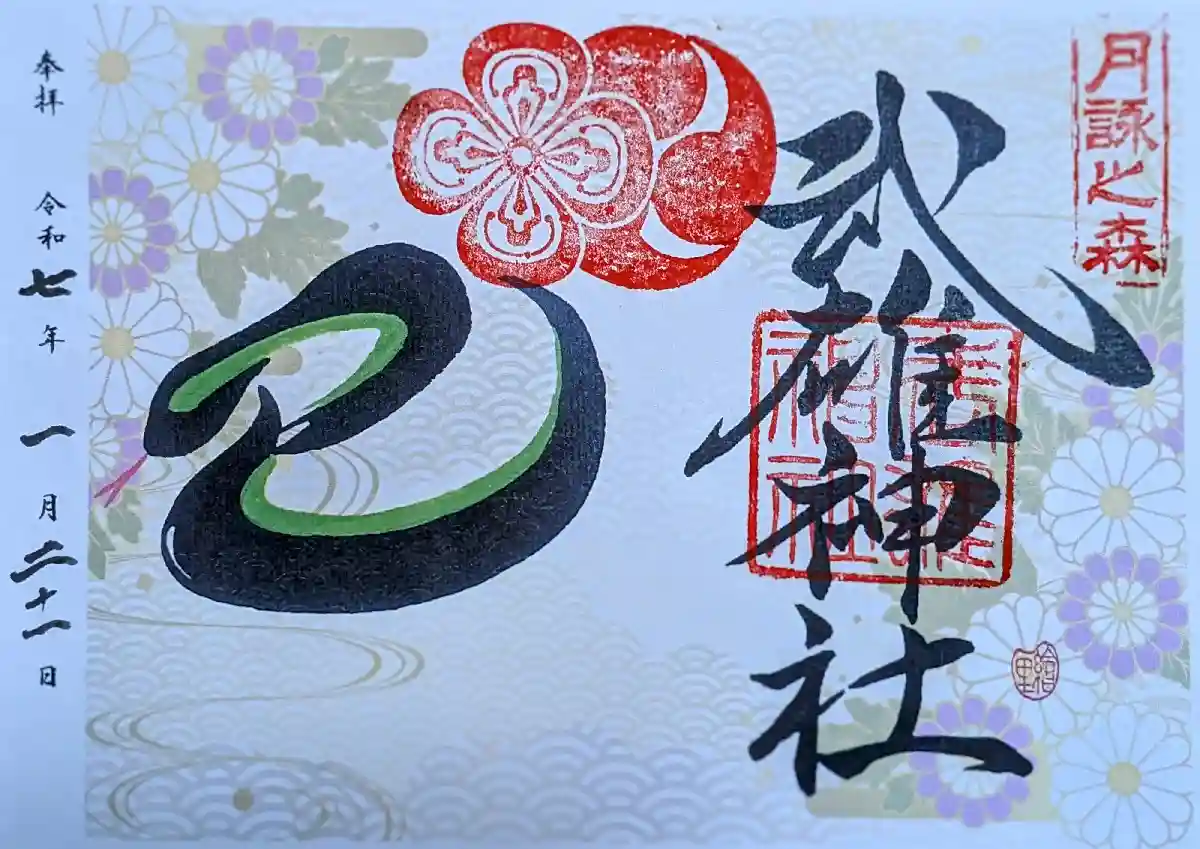 月詠之森
武雄神社
繪里
巳
奉拝 令和七年一月二十一日